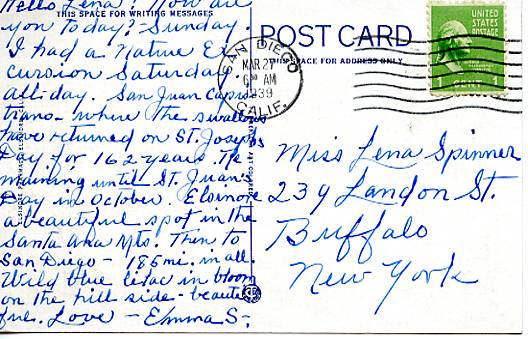 Hello Lena! How are
THIS SPACE FOR WRITING MESSAGES
you today? Sunday
I had a Nature Ex
cursion Saturday
all-day. San Juan Capis-
trano - where the swallows
have returned on St. Josephs
Day for 162 years. Re
maining until St. Juan's
Day in October. Elsinore
a beautiful spot in the
Santa Ana Mts. Then to
San Diego - 186 mi. in all.
Wild blue lilac in bloom
on the hill side - beauti
ful. Love - Emma S-
POST CARD
THIS SPACE FOR ADDRESS ONLY
SAN DIEGO
MAR 27
6 AM
1939
CALIF.
UNITED
STATES
POSTAGE
1 CENT 1
Miss Lena Spinner
239 Landon St.
Buffalo
New York